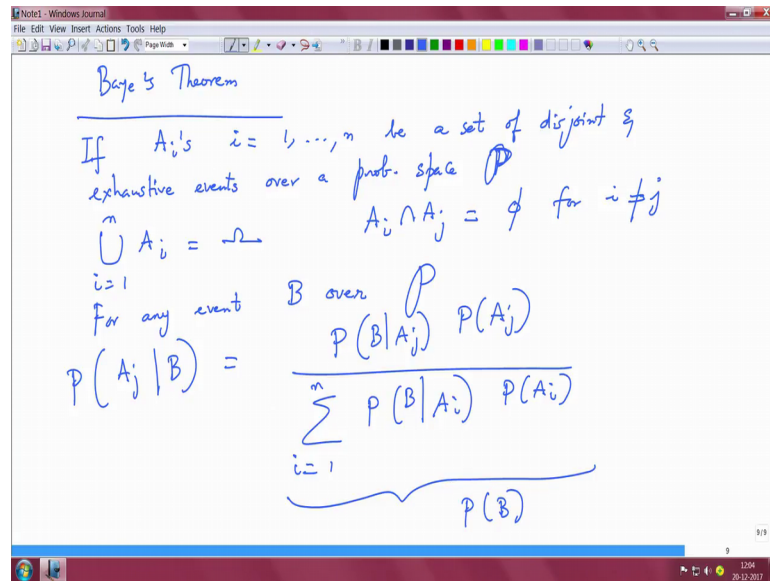 Note1 - Windows Journal
File Edit View Insert Actions Tools Help
Page Width
Baye's Theorem
If Ai's i = 1, ..., n be a set of disjoint &
exhaustive events over a prob. space P
n
⋃ Ai = Ω    Ai ∩ Aj = ϕ for i ≠ j
i=1
For any event B over P
P(B|Aj) P(Aj)
P(Aj | B) =
n
∑ P(B|Ai) P(Ai)
i=1
P(B)
9/9
9
12:04
20-12-2017